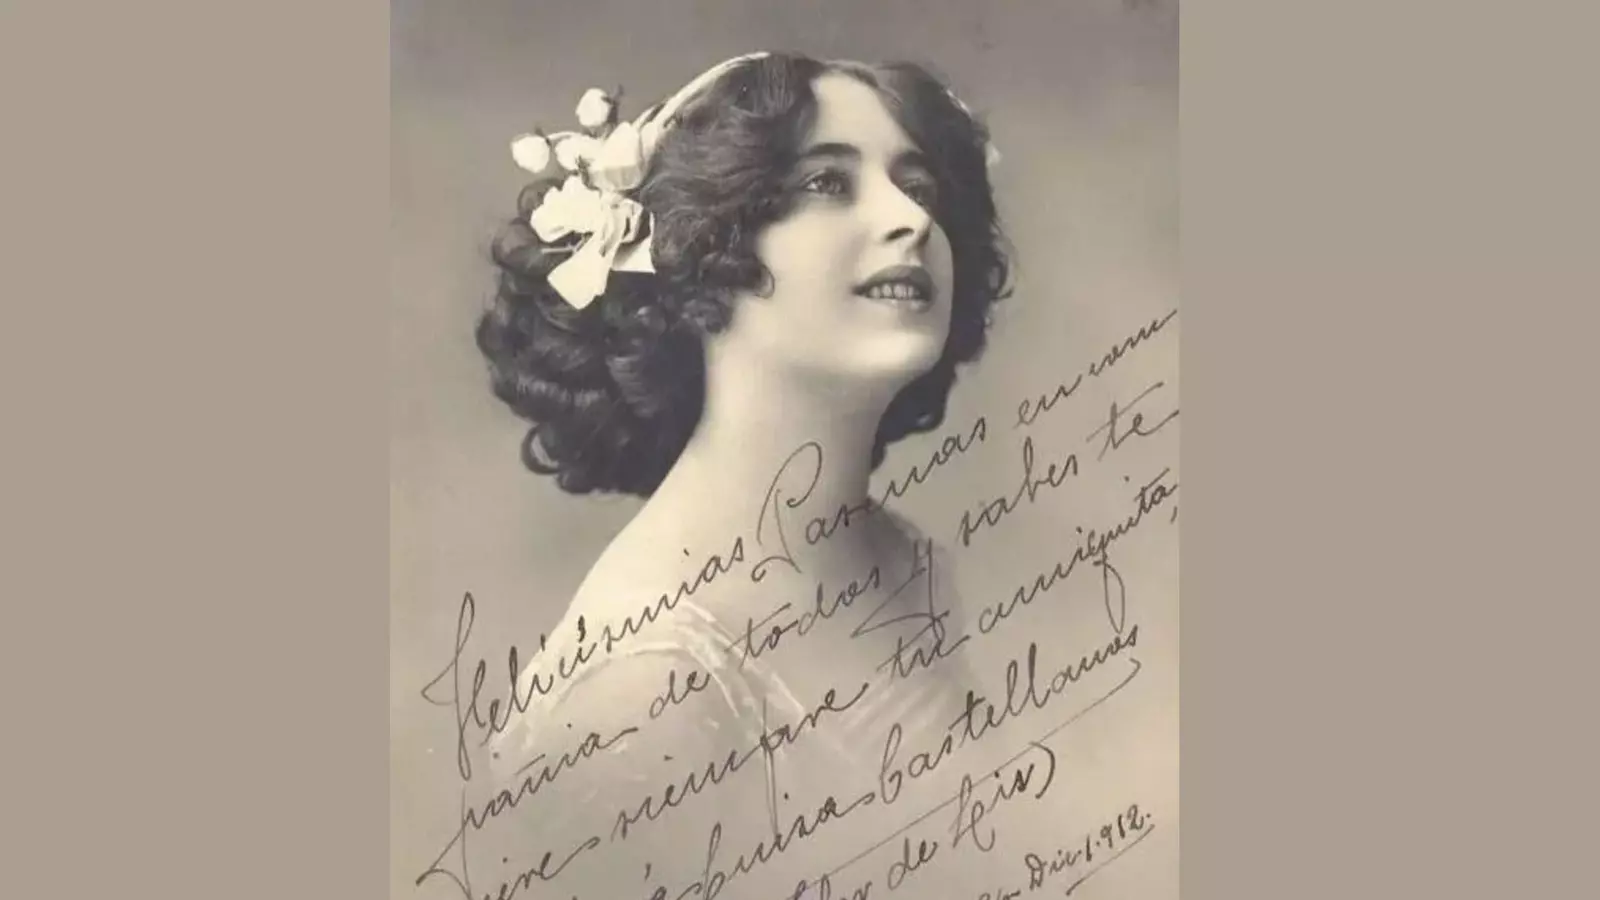 Felicísimas Pascuas en com
pañia de todos y sabes te
quiere siempre tu amiguita,
Luisa Castellanos
(Flor de Lis)
Dic. 1.912.